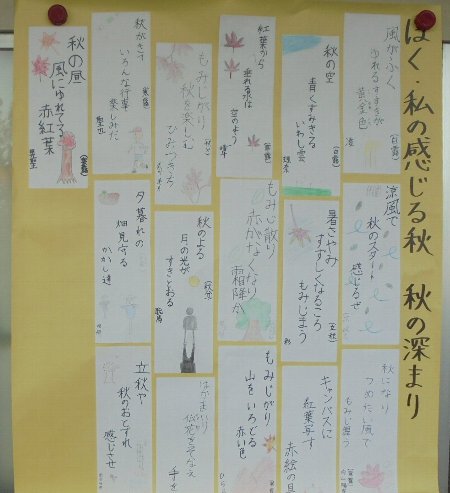 ぼく・私の感じる秋 秋の深まり
風がふく
ゆれるすすきが
黄金色
秋の空
青くすみきる
いわし雲
紅葉から
垂れる水は
空のよう
もみじがり
秋を楽しむ
秋がきて
いろんな行事
楽しみだ
秋の昼
風にゆれてる
赤紅葉
涼風で
秋のスタート
感じるぜ
暑さやみ
すずしくなるころ
もみじまう
もみじ散り
赤がなくなり
霜降か
秋のよる
月の光が
すきとおる
夕暮れの
畑見守る
かかし達
秋になり
つめたい風で
もみじ舞う
キャンバスに
紅葉写す
赤絵の具
もみじがり
山をいろどる
赤い色
はかまいり
仏花をそなえ
立秋や
秋のおとずれ
感じさせ